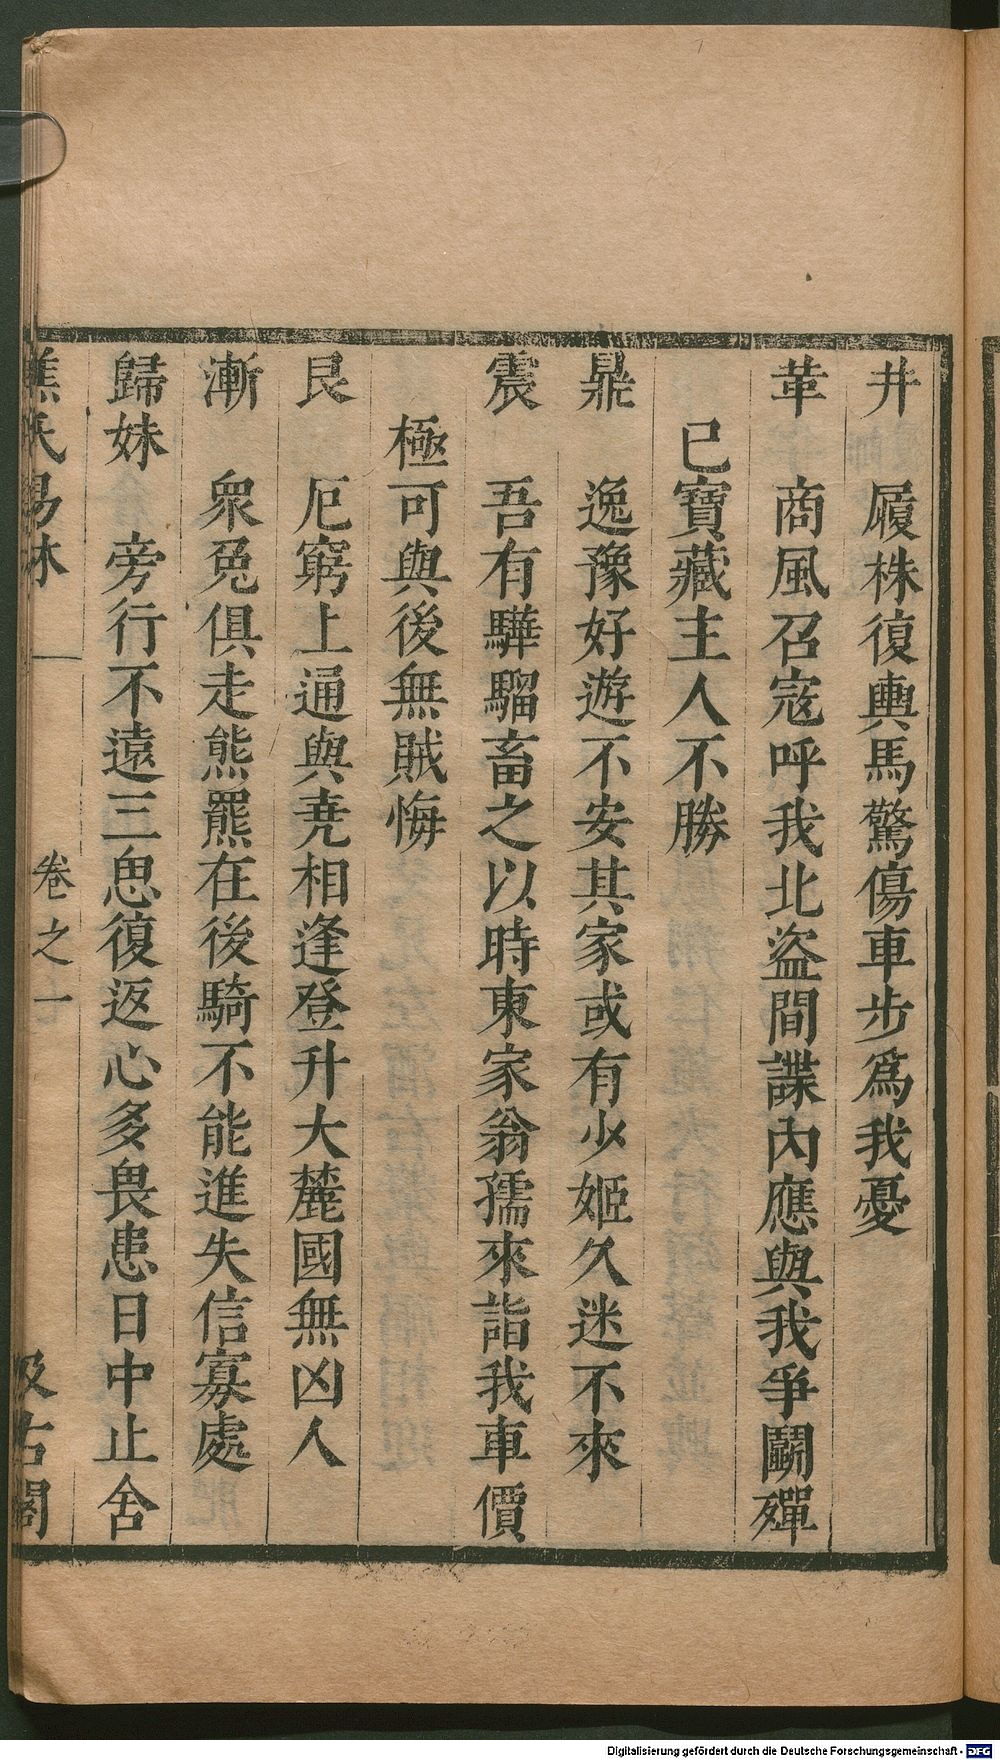 井　履株復輿馬驚傷車步爲我憂
革　商風召寇呼我北盜間諜內應與我爭鬭殫
己寶藏主人不勝
鼎　逸豫好遊不安其家或有少姬久迷不來
震　吾有驊騮畜之以時東家翁孺來詣我車價
極可與後無賊悔
艮　厄窮上通與堯相逢登升大麓國無凶人
漸　衆兔俱走熊羆在後騎不能進失信寡處
歸妹　旁行不遠三思復返心多畏患日中止舍
焦氏易林　卷之七　汲古閣
Digitalisierung gefördert durch die Deutsche Forschungsgemeinschaft - DFG